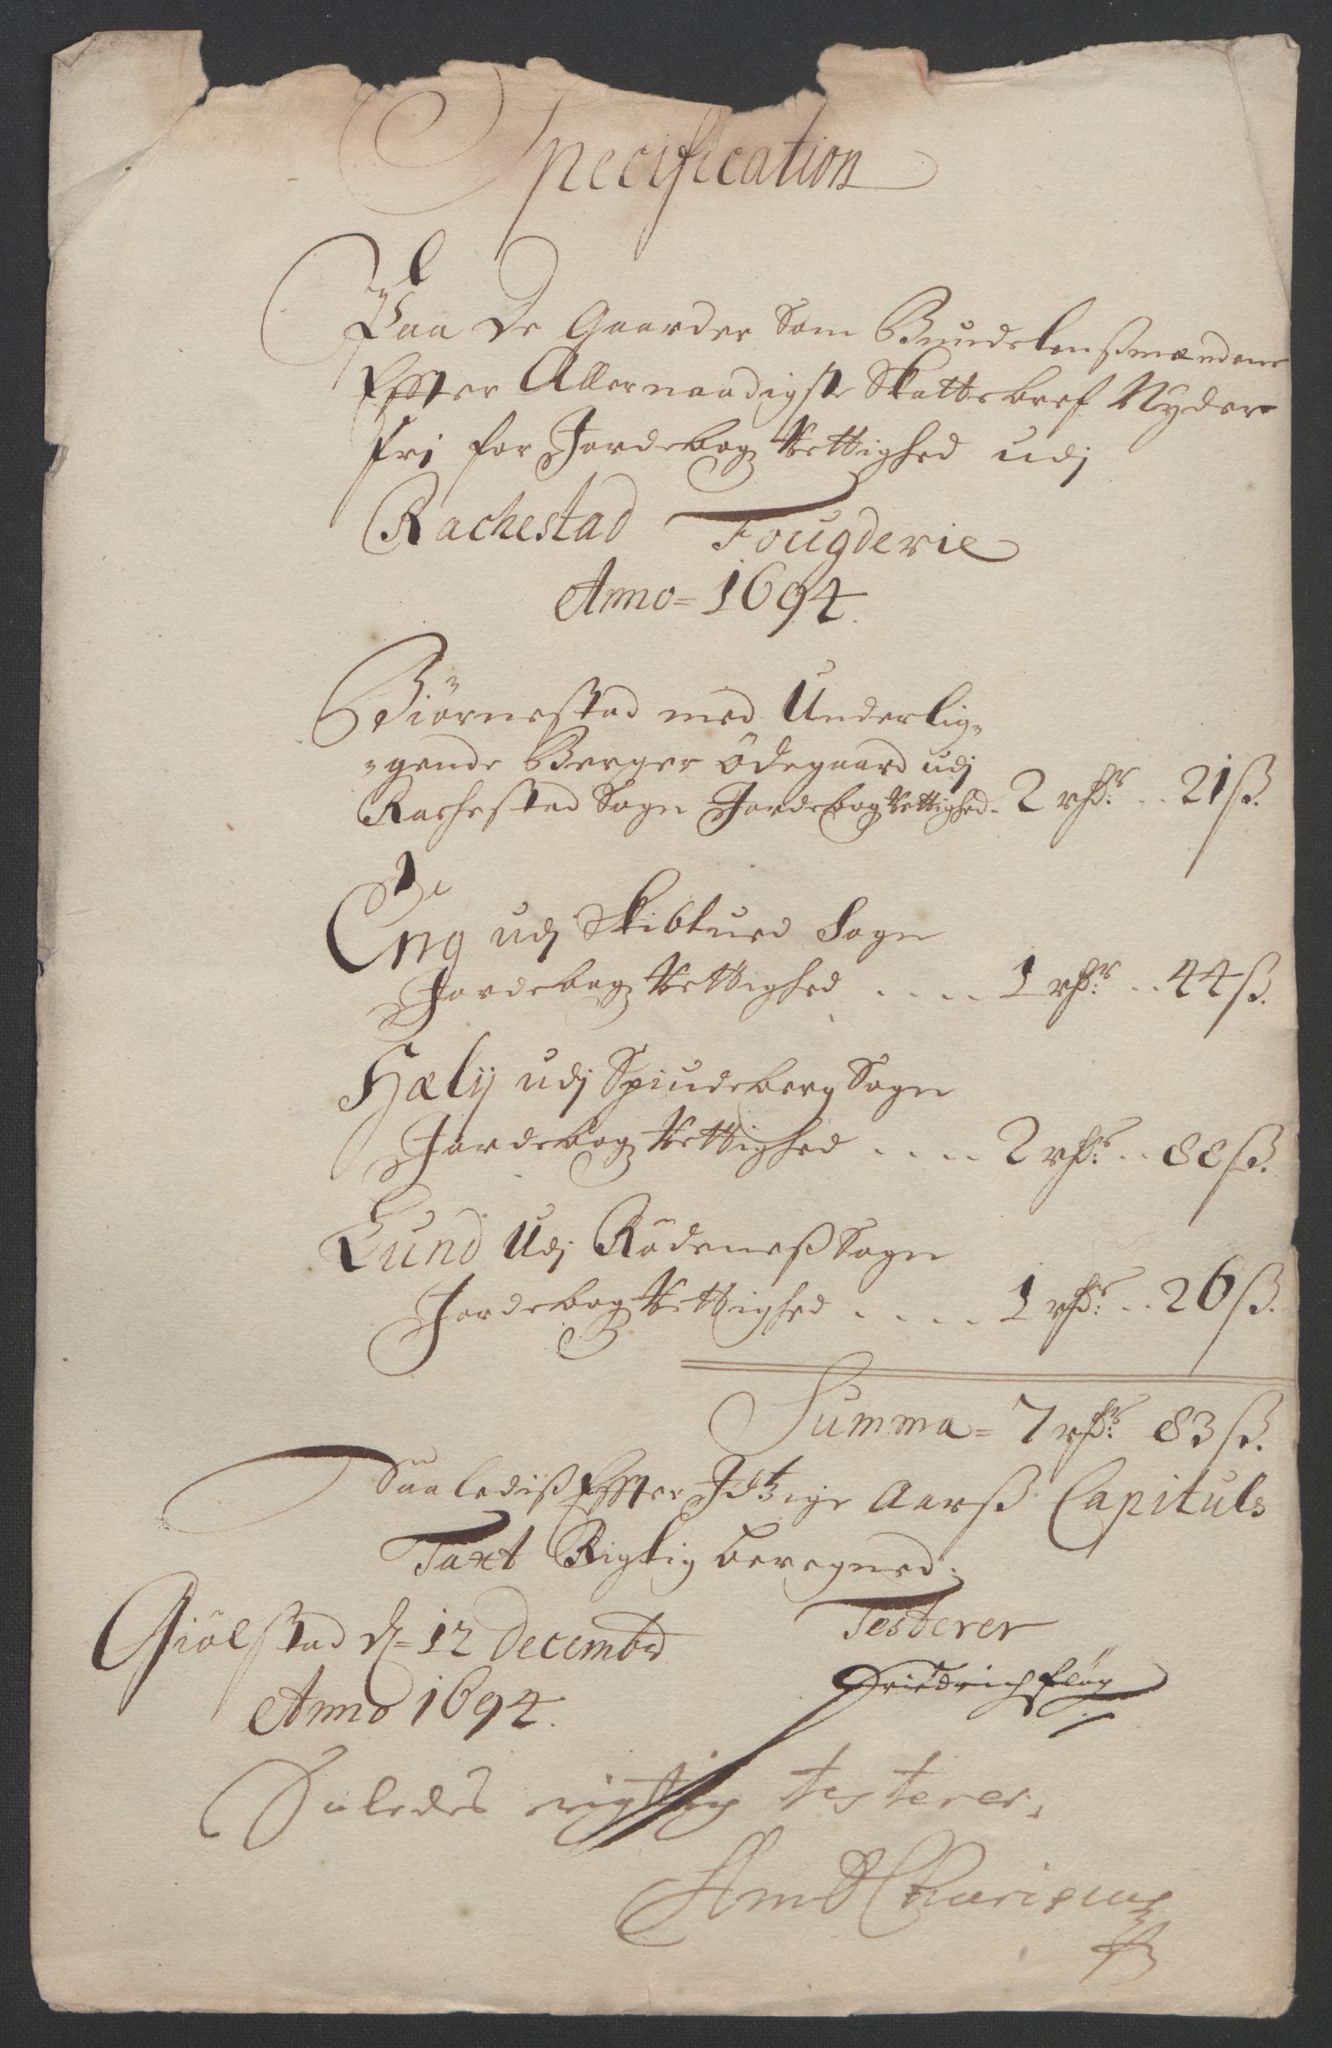 Specification
Paa De Gaarder Som Bundelensmændene
Effter Allernaadigste Skattebref Nyder
fri for Jordebog Rettighed udj
Rachestad Fougderie
Anno = 1694.
Biörnestad med Underlig=
=gende Berger Ödegaard udj
Rachestad Sogn Jordebog Rettighed. 2 rdr. .. 21 ß.
Eng udj Skibtued Sogn
Jordebog Rettighed .... 1 rdr. .. 44 ß.
Hælij udj Spiudeberg Sogn
Jordebog Rettighed .... 2 rdr. .. 88 ß.
Lund Udj Rödeneß Sogn
Jordebog Rettighed .... 1 rdr. .. 26 ß.
Summa = 7 rdr. 83 ß.
Saalediß Effter Jdtzige Aarß Capituls
Taxt Rigtig beregned.
Giölstad d = 12 Decembr
Testerer
Anno 1694.
Friedrich
Saledes rigttig testerer,